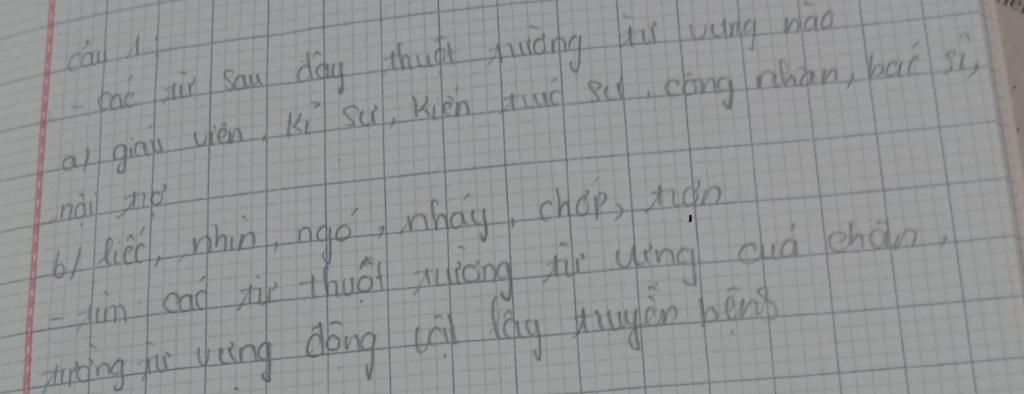 câu 1
- các từ sau đây thuột trường từ vựng nào
a) giáo viên, kĩ sư, kiến trúc sư, công nhân, bác sĩ,
nội trợ
b) liếc, nhìn, ngó, nháy, chớp,
- tìm các từ thuột trường từ vựng của chân,
trường từ vựng động vật lây truyền bệnh